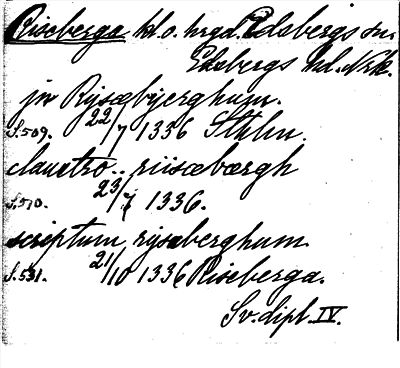 Riseberga kl. o. hrgd. Edsbergs sn.
Edsbergs hd. Nrk.
jn Rysæbyerghum.
S. 509. 22/7 1336 Sthlm.
claustro.. riisæbærgh
S. 510. 23/7 1336.
scriptum rysæberghum
S. 531. 21/10 1336 Riseberga.
Sv. dipl. IV.